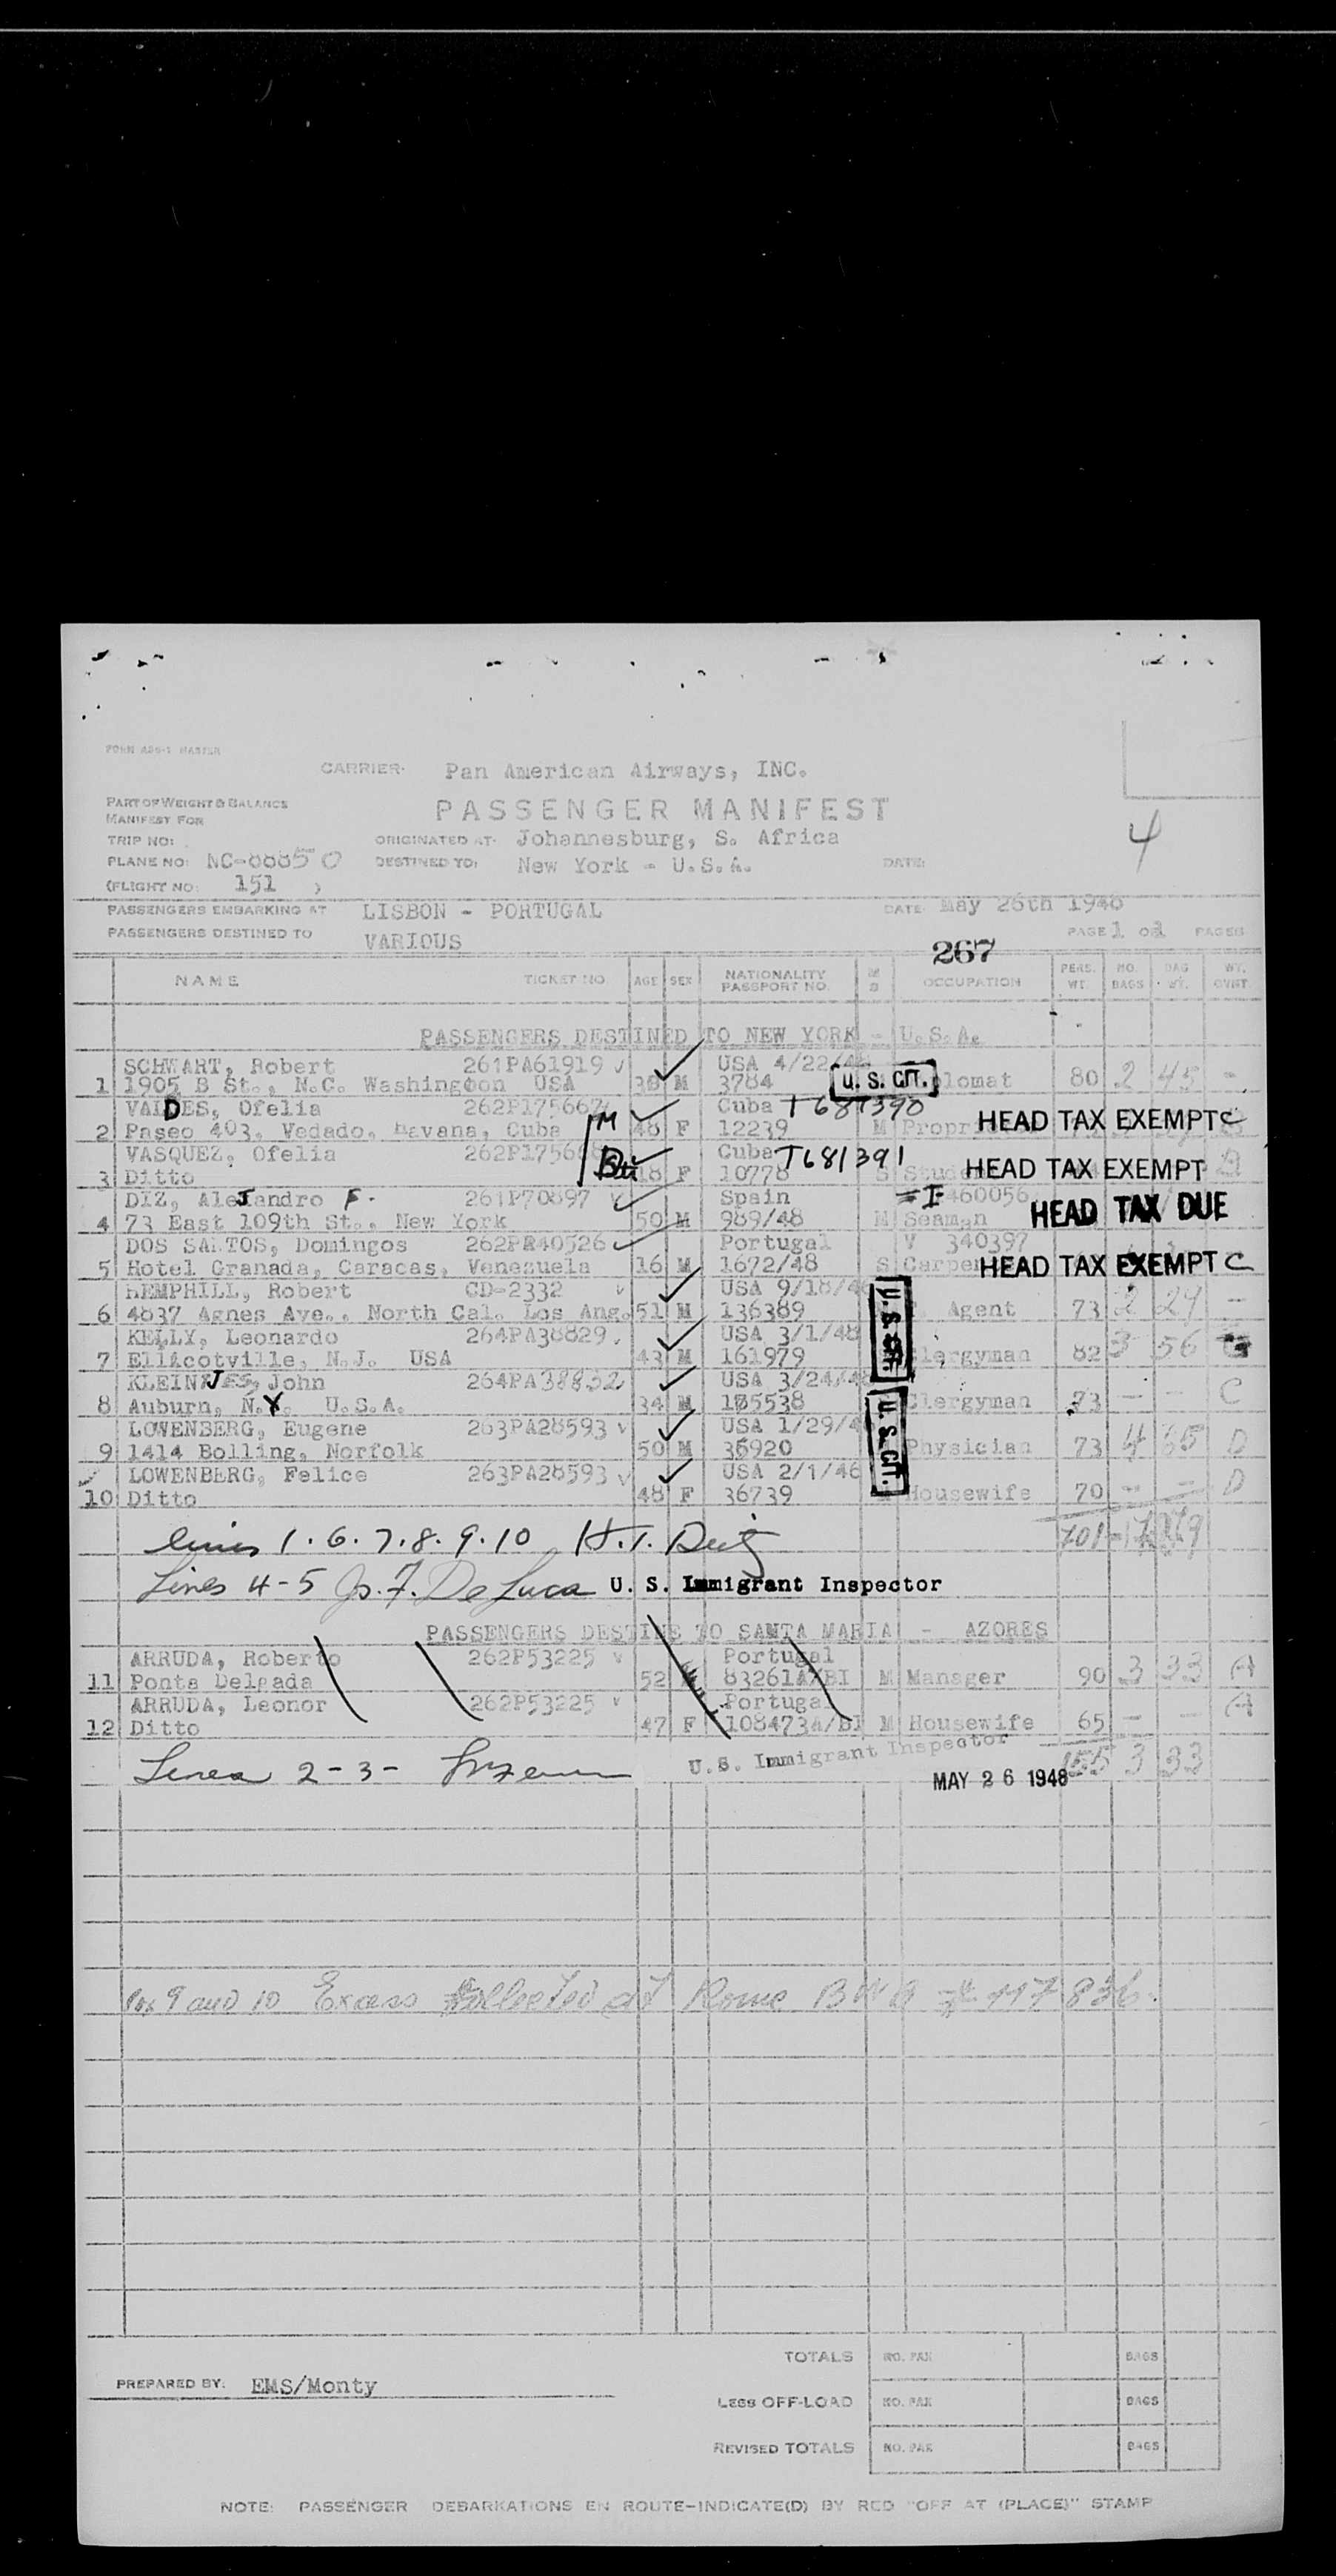 FORM ABS-1 MASTER
CARRIER- Pan American Airways, INC.
PART OF WEIGHT & BALANCE
MANIFEST FOR
PASSENGER MANIFEST
4
TRIP NO:
ORIGINATED AT- Johannesburg, S. Africa
PLANE NO: NC-88850
DESTINED TO: New York - U.S.A.
DATE:
(FLIGHT NO: 151 )
PASSENGERS EMBARKING AT LISBON - PORTUGAL
DATE May 26th 1948
PASSENGERS DESTINED TO VARIOUS
PAGE 1 OF 1 PAGES
267
NAME TICKET NO AGE SEX NATIONALITY PASSPORT NO. M S OCCUPATION PERS. WT. NO. BAGS BAG WT. WT. CVNT.
PASSENGERS DESTINED TO NEW YORK - U.S.A.
SCHWART, Robert 261PA61919 USA 4/22/48
1 1905 B St., N.C. Washington USA 38 M 3784 U.S. CIT. lomat 80 2 45 -
VALDES, Ofelia 262P175667 Cuba T687390
2 Paseo 403, Vedado, Havana, Cuba M 48 F 12239 M Propr HEAD TAX EXEMPT C
VASQUEZ, Ofelia 262P175668 Cuba T681391
3 Ditto 18 F 10778 S Stude HEAD TAX EXEMPT
DIZ, AleJandro F. 261P70897 Spain = I 460056
4 73 East 109th St., New York 50 M 989/48 M Seaman HEAD TAX DUE
DOS SANTOS, Domingos 262PR40526 Portugal V 340397
5 Hotel Granada, Caracas, Venezuela 16 M 1672/48 S Carpen HEAD TAX EXEMPT C
HEMPHILL, Robert CD-2332 USA 9/18/46
6 4837 Agnes Ave., North Cal. Los Ang. 51 M 136389 Agent 73 2 29 -
KELLY, Leonardo 264PA38829 USA 3/1/48
7 Ellicotville, N.J. USA 43 M 161979 U.S. CIT. lergyman 82 3 56
KLEINJES, John 264PA38832 USA 3/24/48
8 Auburn, N.Y. U.S.A. 34 M 185538 Clergyman 73 - - C
LOWENBERG, Eugene 263PA28593 USA 1/29/4
9 1414 Bolling, Norfolk 50 M 36920 U.S. CIT. Physician 73 4 65 D
LOWENBERG, Felice 263PA28593 USA 2/1/46
10 Ditto 48 F 36739 Housewife 70 - - D
lines 1. 6. 7. 8. 9. 10 H.T.
701
Lines 4-5 Jos. F. DeLuca U. S. Immigrant Inspector
PASSENGERS DESTINE TO SANTA MARIA - AZORES
ARRUDA, Roberto 262P53225 Portugal
11 Ponta Delgada 52 83261A/BI M Manager 90 3 33 A
ARRUDA, Leonor 262P53225 Portugal
12 Ditto 47 F 108473A/BI M Housewife 65 - - A
Lines 2-3- U.S. Immigrant Inspector 155 3 33
MAY 26 1948
9 and 10 Excess collected at Rome 117836.
TOTALS NO. PAX BAGS
PREPARED BY: EMS/Monty
LESS OFF-LOAD NO. PAX BAGS
REVISED TOTALS NO. PAX BAGS
NOTE: PASSENGER DEBARKATIONS EN ROUTE-INDICATE(D) BY RED "OFF AT (PLACE)" STAMP